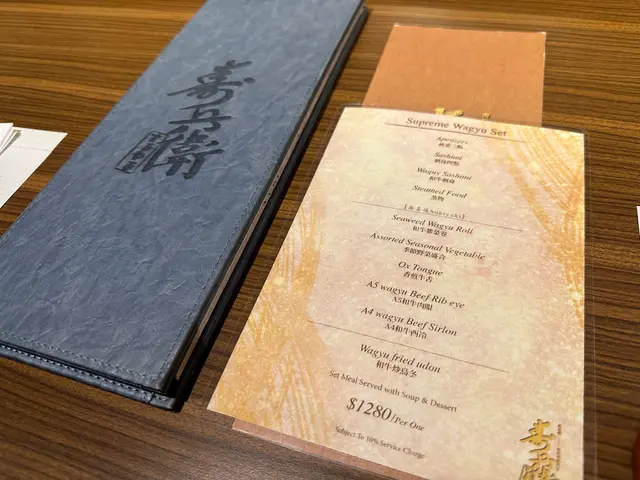 寿兵衛
Supreme Wagyu Set
Apetizers
前菜二點
Sashimi
刺身四點
Waguy Sashimi
和牛刺身
Steamed Food
蒸物
Seaweed Wagyu Roll
和牛紫菜卷
Assorted Seasonal Vegetable
季節野菜盛合
Ox Tongue
香煎牛舌
A5 wagyu Beef Rib eye
A5和牛肉眼
A4 wagyu Beef Sirlon
A4和牛西冷
Wagyu fried udon
和牛炒烏冬
Set Meal Served with Soup & Dessert
$1280/Per One
Subject To 10% Service Charge
寿兵衛